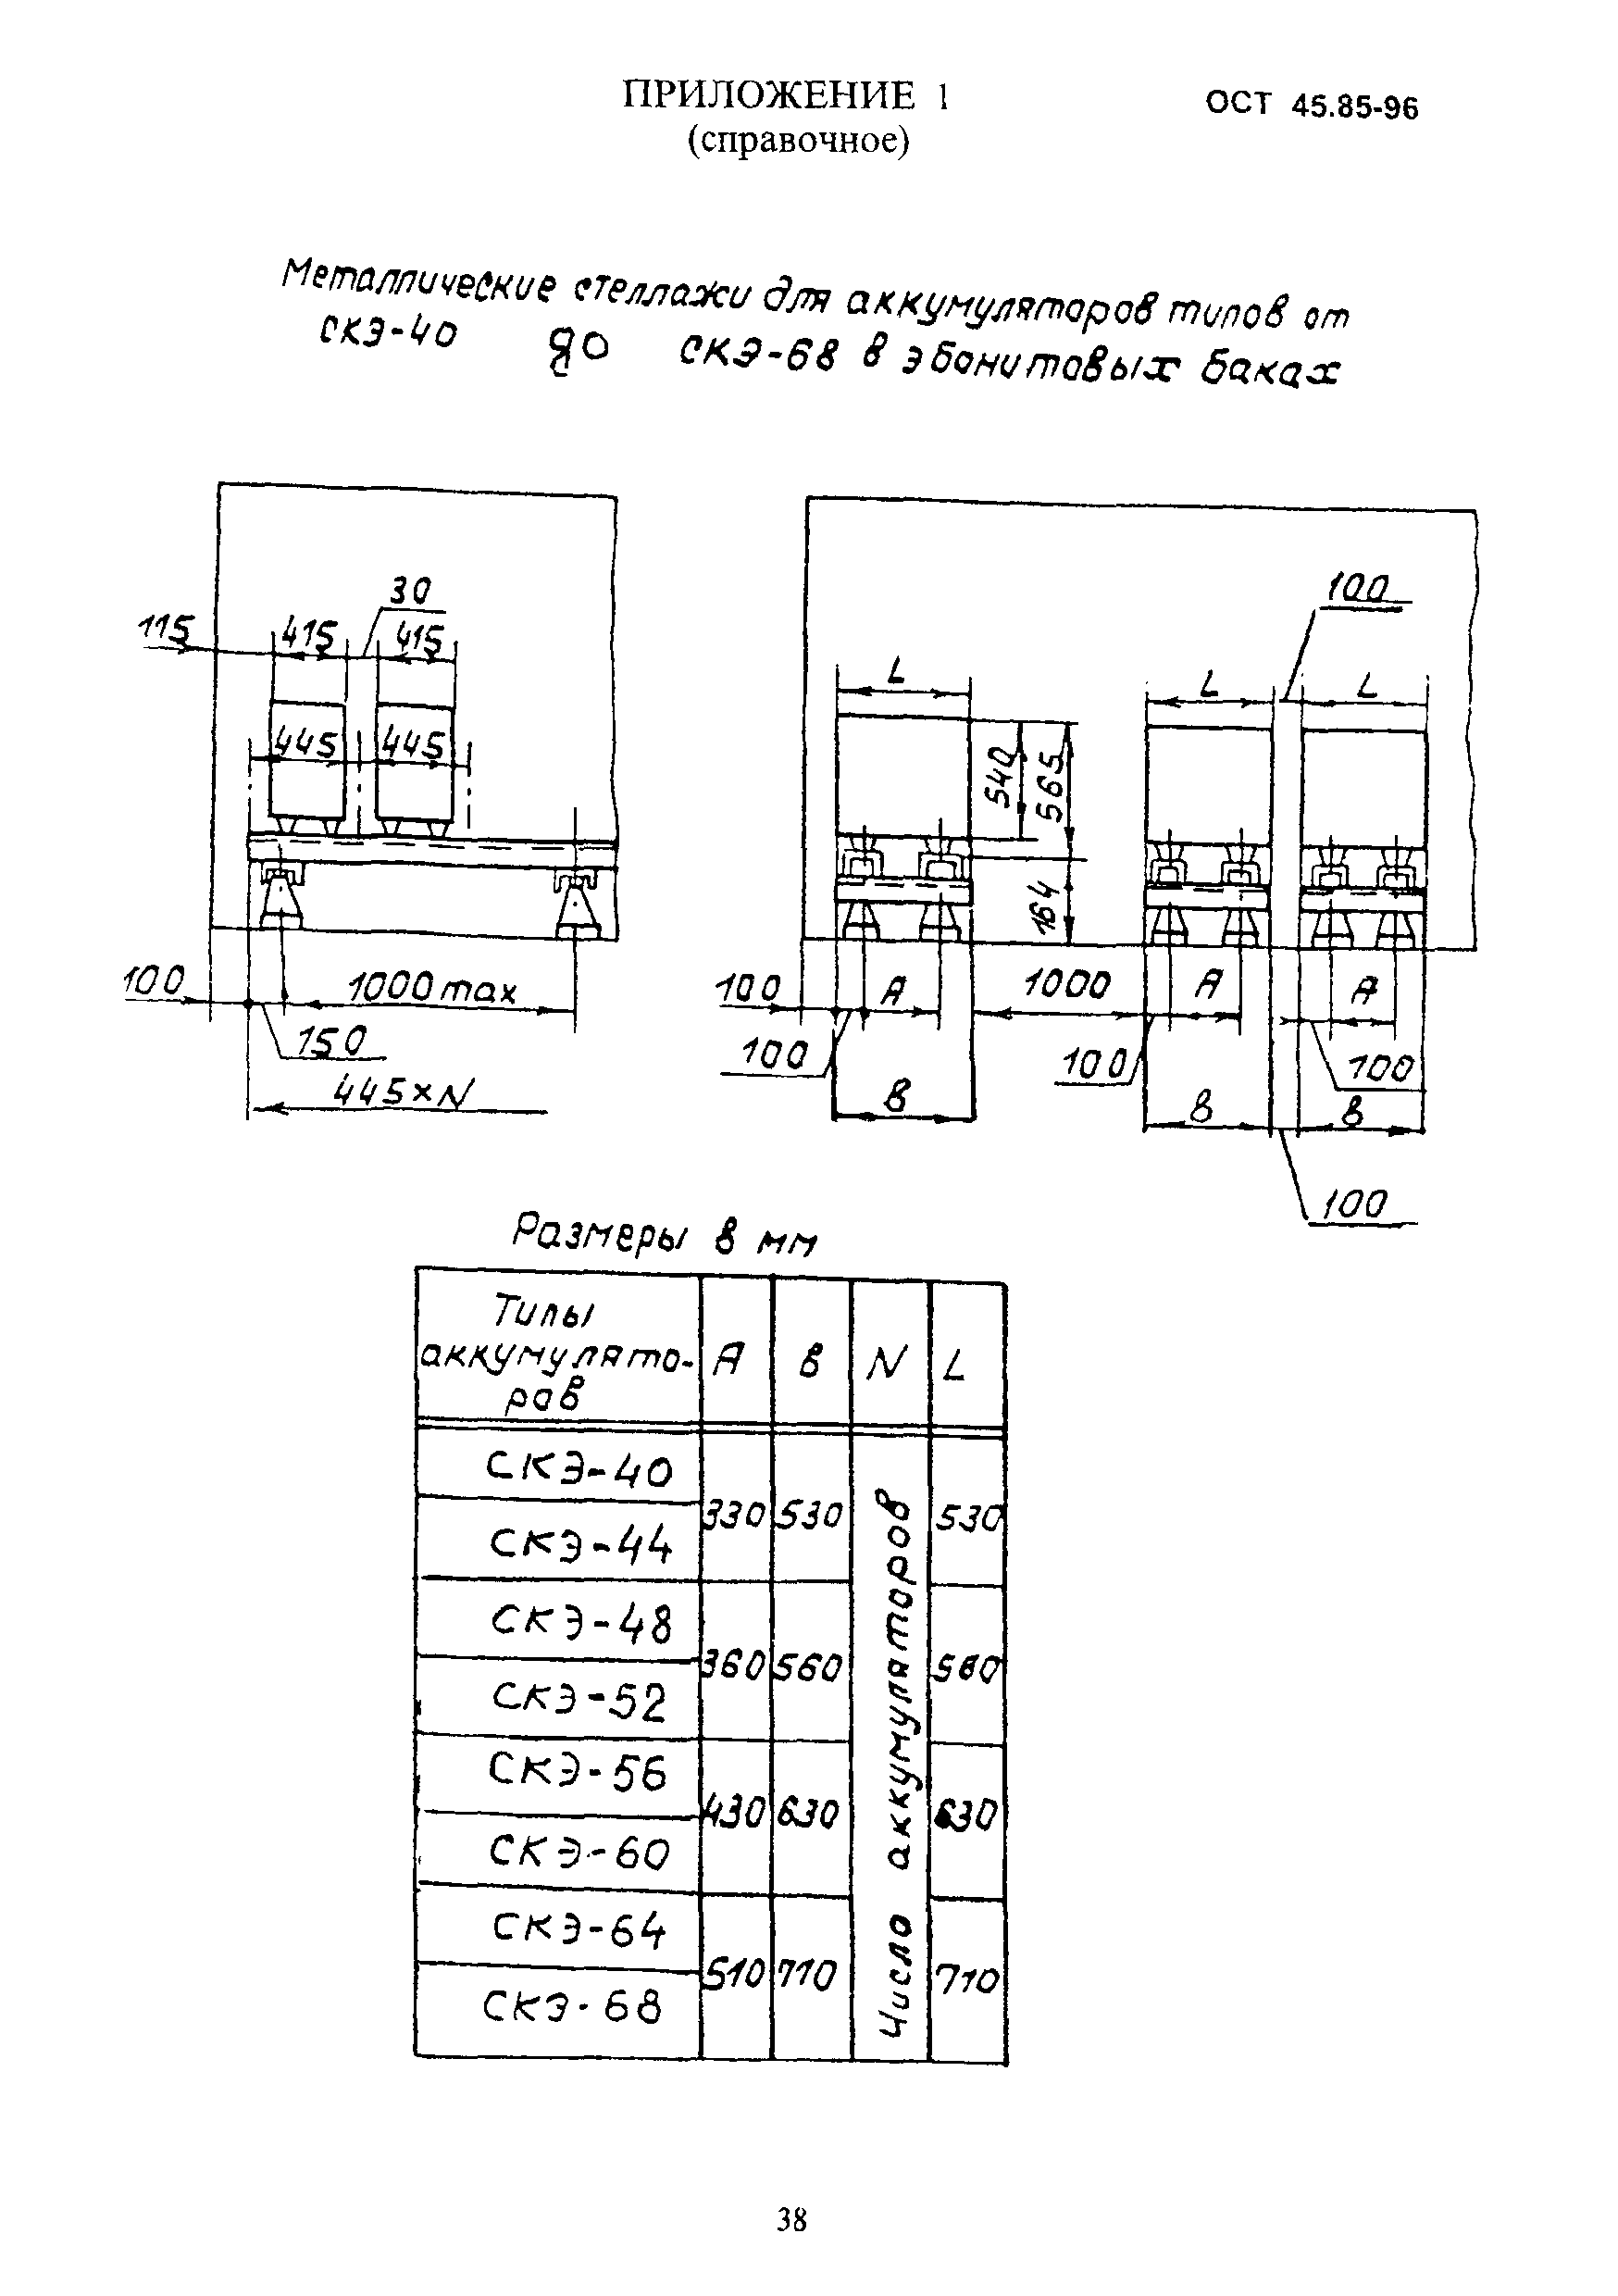 ПРИЛОЖЕНИЕ 1
ОСТ 45.85-96
(справочное)
Металлические стеллажи для аккумуляторов типов от
СКЭ-40 до СКЭ-68 в эбонитовых баках
30
115
415
415
445
445
100
1000 max
150
445×N
100
L
L
L
540
565
164
100
А
1000
А
А
100
100
100
В
В
В
100
Размеры в мм
Типы
аккумулято-
ров
А
В
N
L
СКЭ-40
330
530
530
СКЭ-44
СКЭ-48
360
560
560
СКЭ-52
СКЭ-56
430
630
630
СКЭ-60
СКЭ-64
510
710
710
СКЭ-68
Число аккумуляторов
38